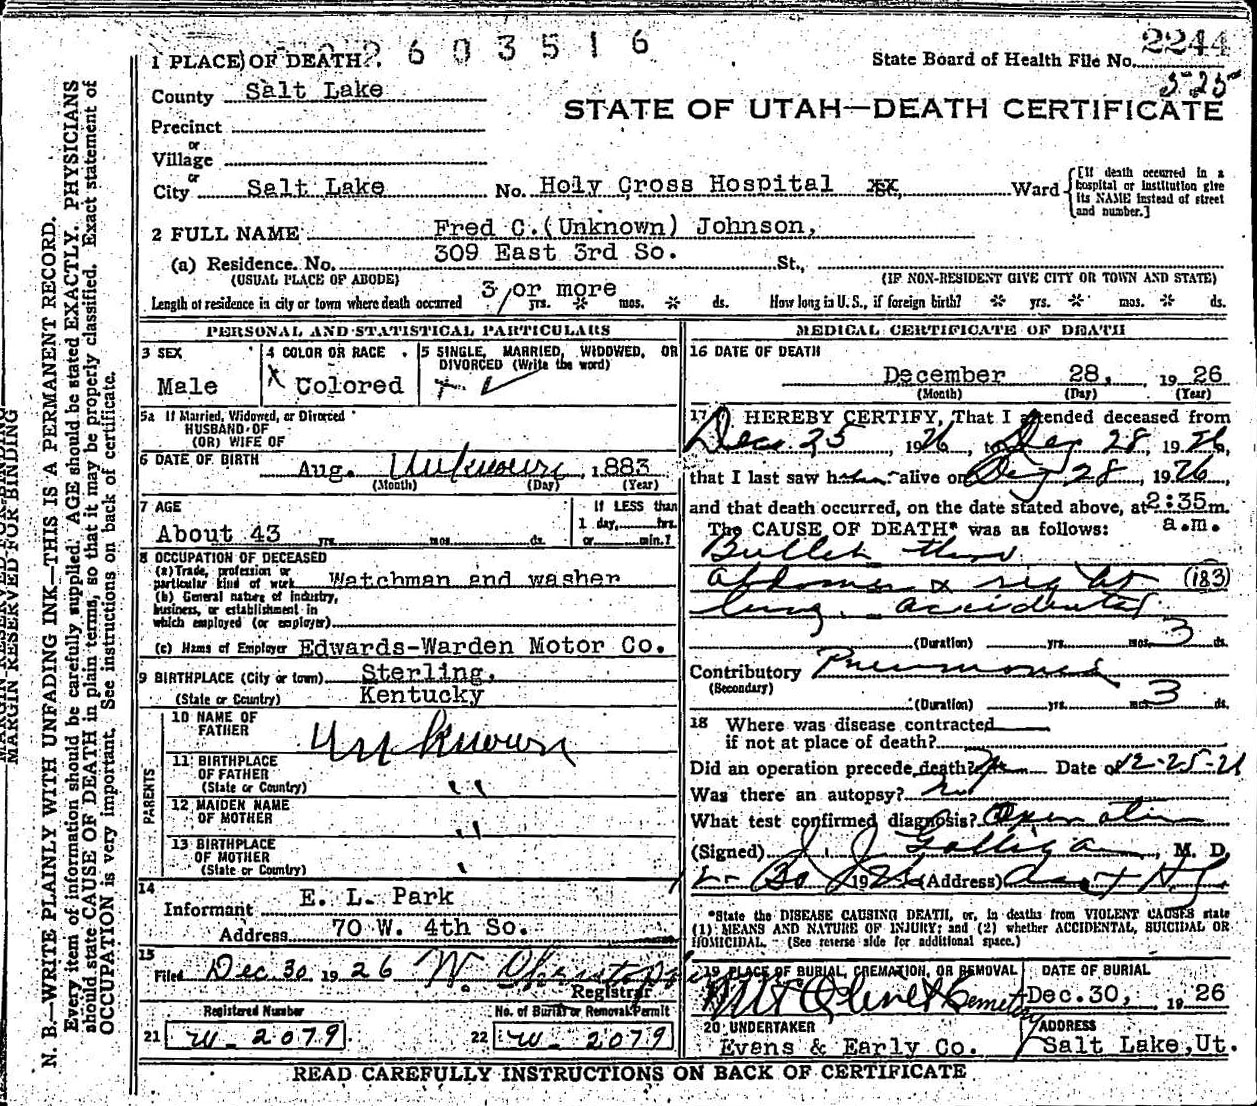 2603516
2244
525
1 PLACE OF DEATH
State Board of Health File No.
County Salt Lake
STATE OF UTAH—DEATH CERTIFICATE
Precinct
or
Village
or
City Salt Lake No. Holy Cross Hospital xx, Ward
[If death occurred in a hospital or institution give its NAME instead of street and number.]
2 FULL NAME Fred C. (Unknown) Johnson,
(a) Residence. No. 309 East 3rd So. St.,
(USUAL PLACE OF ABODE) (IF NON-RESIDENT GIVE CITY OR TOWN AND STATE)
Length of residence in city or town where death occurred 3 or more yrs. * mos. * ds. How long in U. S., if foreign birth? * yrs. * mos. * ds.
PERSONAL AND STATISTICAL PARTICULARS
3 SEX
Male
4 COLOR OR RACE
X Colored
5 SINGLE, MARRIED, WIDOWED, OR DIVORCED (Write the word)
5a If Married, Widowed, or Divorced
HUSBAND OF
(OR) WIFE OF
6 DATE OF BIRTH Aug. Unknown, 1883
(Month) (Day) (Year)
7 AGE
About 43 yrs. mos. ds.
If LESS than
1 day, hrs.
or min.?
8 OCCUPATION OF DECEASED
(a) Trade, profession or
particular kind of work Watchman and washer
(b) General nature of industry,
business, or establishment in
which employed (or employer)
(c) Name of Employer Edwards-Warden Motor Co.
9 BIRTHPLACE (City or town) Sterling,
(State or Country) Kentucky
PARENTS
10 NAME OF
FATHER Unknown
11 BIRTHPLACE
OF FATHER "
(State or Country)
12 MAIDEN NAME
OF MOTHER "
13 BIRTHPLACE
OF MOTHER
(State or Country)
14
Informant E. L. Park
Address 70 W. 4th So.
15
Filed Dec. 30 1926
Registrar
Registered Number
21 W-2079
No. of Burial or Removal Permit
22 W-2079
MEDICAL CERTIFICATE OF DEATH
16 DATE OF DEATH
December 28, 1926
(Month) (Day) (Year)
17 I HEREBY CERTIFY, That I attended deceased from
Dec. 25, 1926, to Dec 28 1926,
that I last saw him alive on Dec 28, 1926,
and that death occurred, on the date stated above, at 2:35 m.
a.m.
The CAUSE OF DEATH* was as follows:
Bullet thru
abdomen & right (183)
lung. accidental
(Duration) yrs. mos. 3 ds.
Contributory Pneumonia
(Secondary)
(Duration) yrs. mos. 3 ds.
18 Where was disease contracted
if not at place of death?
Did an operation precede death? Yes Date of 12-25-26
Was there an autopsy? no
What test confirmed diagnosis? Operation
(Signed) J. J. Galligan, M. D.
30 1926 (Address)
*State the DISEASE CAUSING DEATH, or, in deaths from VIOLENT CAUSES state
(1) MEANS AND NATURE OF INJURY; and (2) whether ACCIDENTAL, SUICIDAL OR
HOMICIDAL. (See reverse side for additional space.)
19 PLACE OF BURIAL, CREMATION, OR REMOVAL
Mt Olivet Cemetery
DATE OF BURIAL
Dec. 30, 1926
20 UNDERTAKER
Evans & Early Co.
ADDRESS
Salt Lake, Ut.
READ CAREFULLY INSTRUCTIONS ON BACK OF CERTIFICATE
MARGIN RESERVED FOR BINDING
MARGIN RESERVED FOR BINDING
N. B.—WRITE PLAINLY WITH UNFADING INK—THIS IS A PERMANENT RECORD.
Every item of information should be carefully supplied. AGE should be stated EXACTLY. PHYSICIANS
should state CAUSE OF DEATH in plain terms, so that it may be properly classified. Exact statement of
OCCUPATION is very important. See instructions on back of certificate.